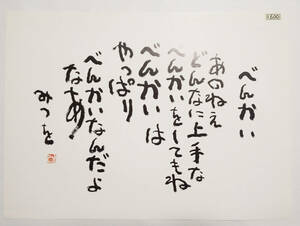 べんかい
あのねえ
どんなに上手な
べんかいをしてもね
べんかいは
やっぱり
べんかいなんだよ
なああ
みつを
1,600